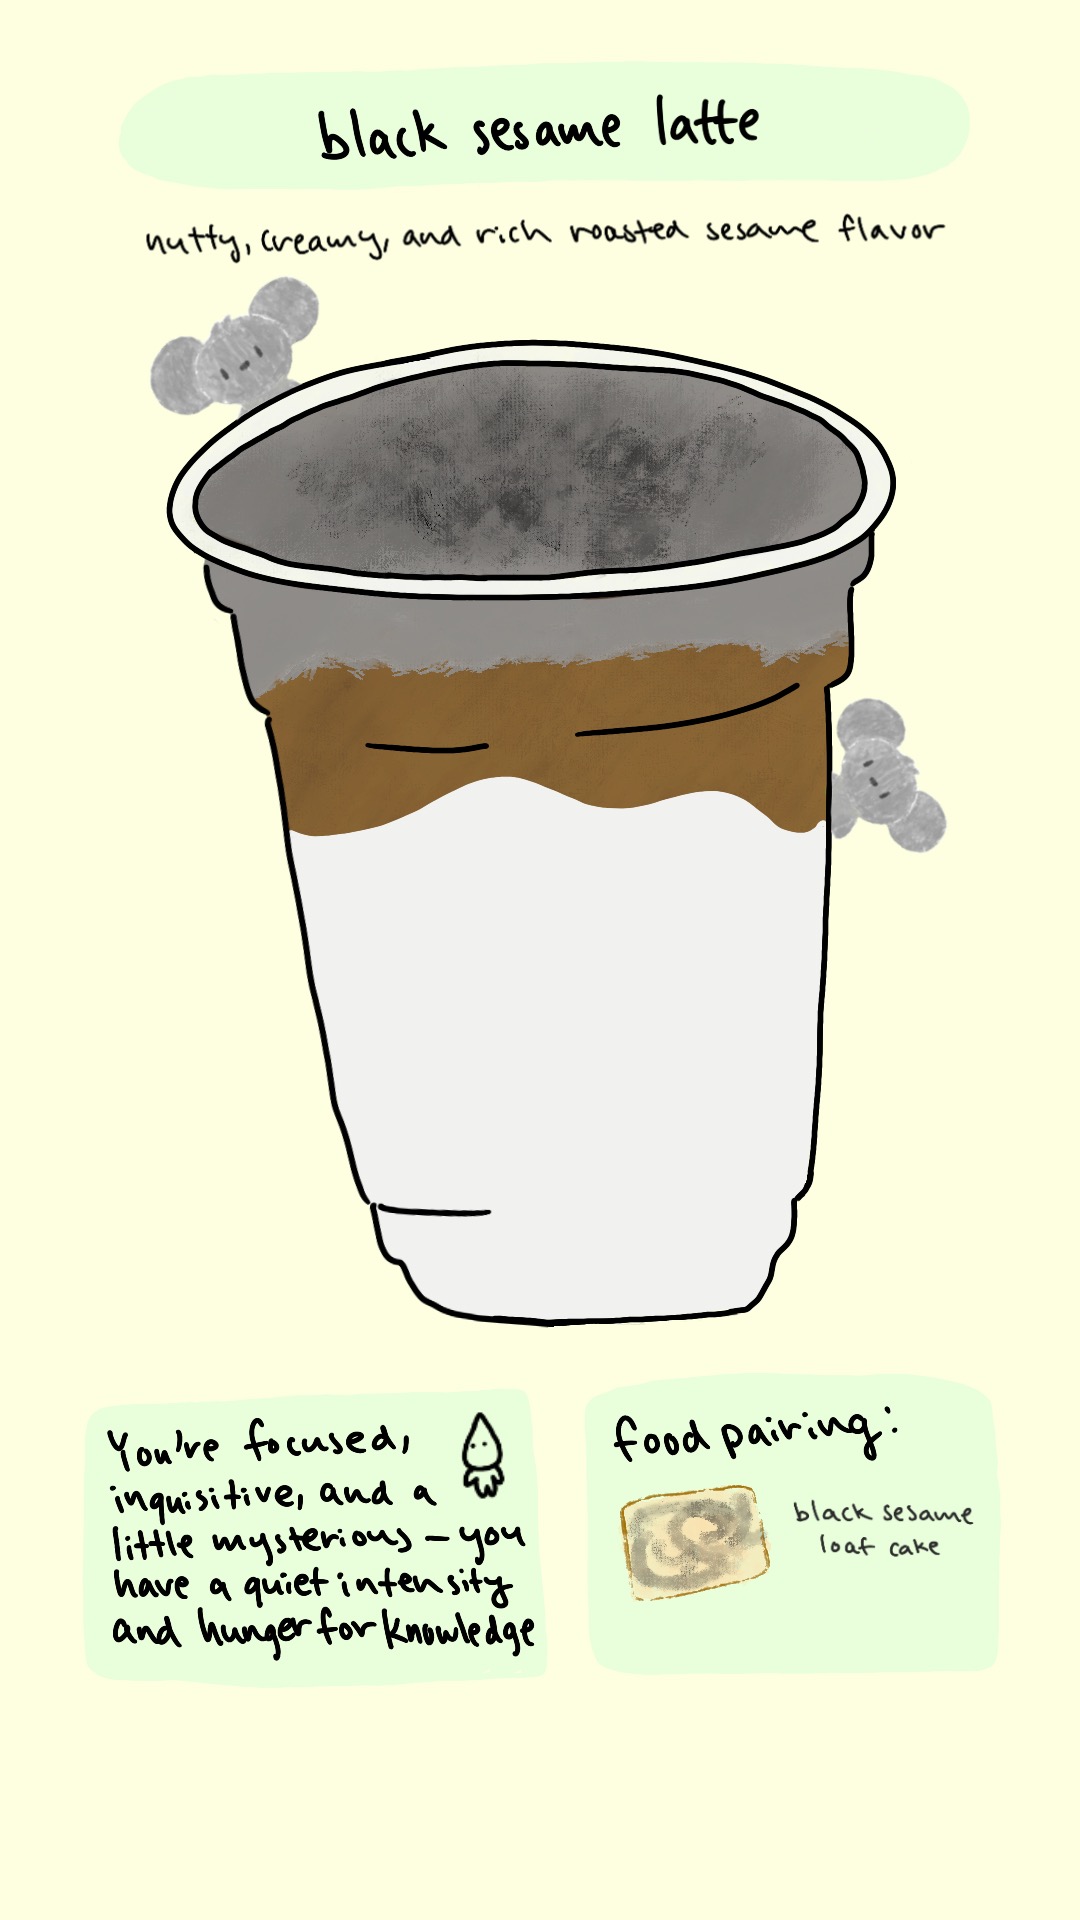 black sesame latte
nutty, creamy, and rich roasted sesame flavor
You're focused,
inquisitive, and a
little mysterious – you
have a quiet intensity
and hunger for knowledge
food pairing:
black sesame
loaf cake